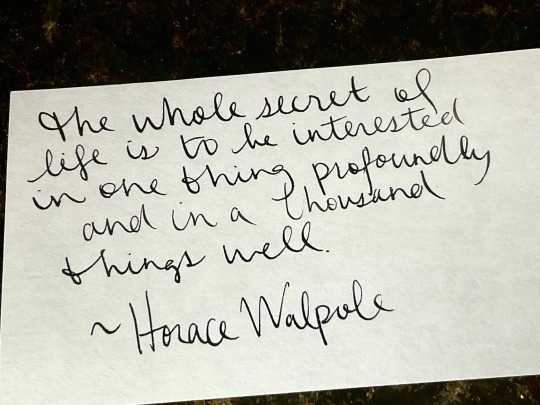 The whole secret of
life is to be interested
in one thing profoundly
and in a thousand
things well.
~ Horace Walpole